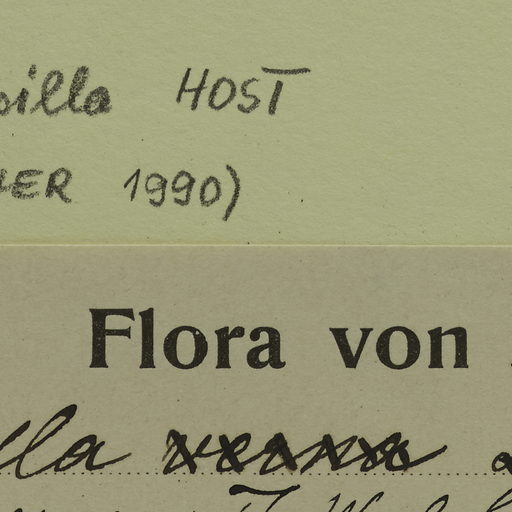 silla HOST
ER 1990)
Flora von
lla verna